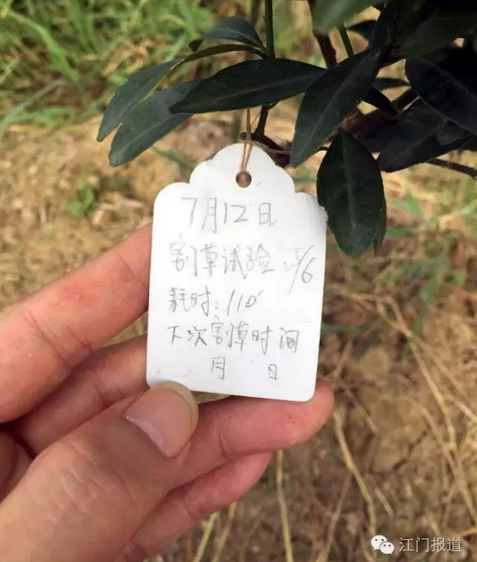 7月12日
割草试验 /6
耗时:110'
下次割草时间
月 日
江门报道